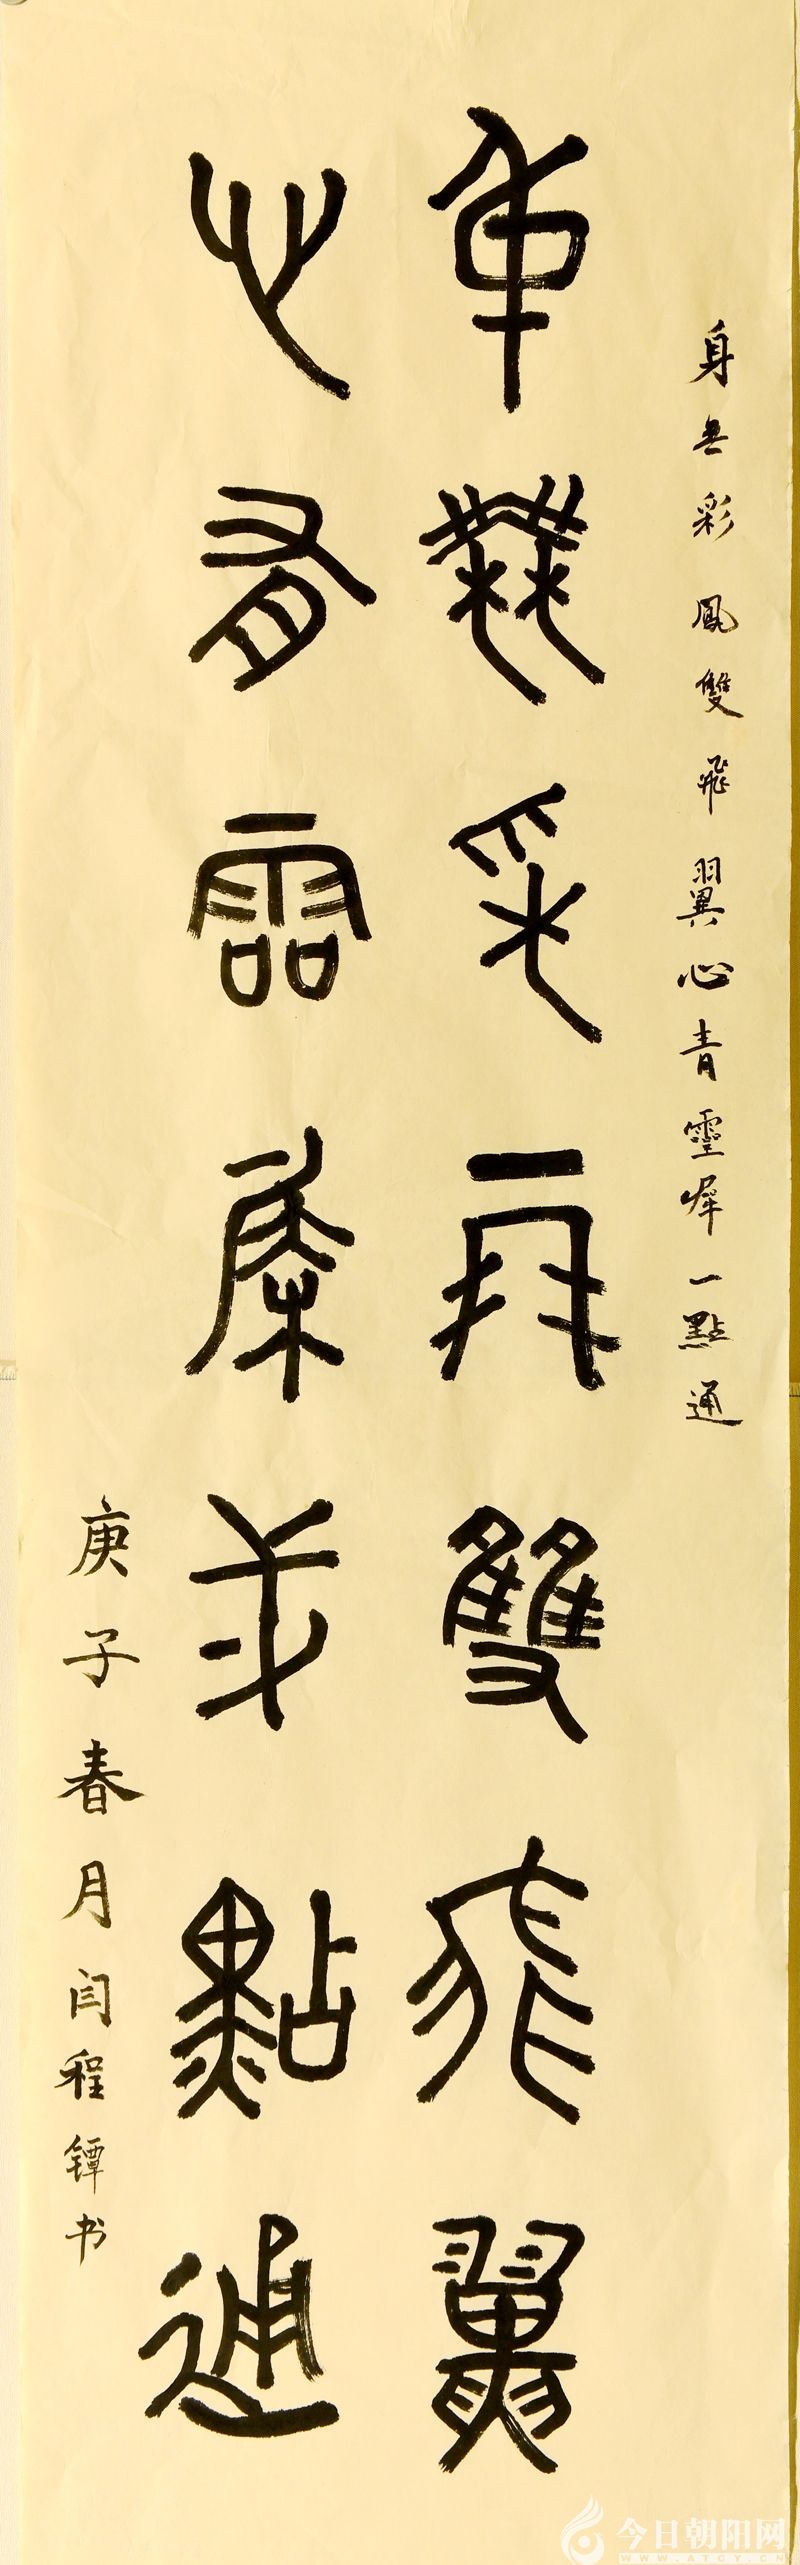 身無彩鳳雙飛翼心青靈犀一點通
身無采鳳雙飛翼
心有靈犀弌點通
庚子春月闫程镡书
今日朝阳网
WWW.ATCY.CN